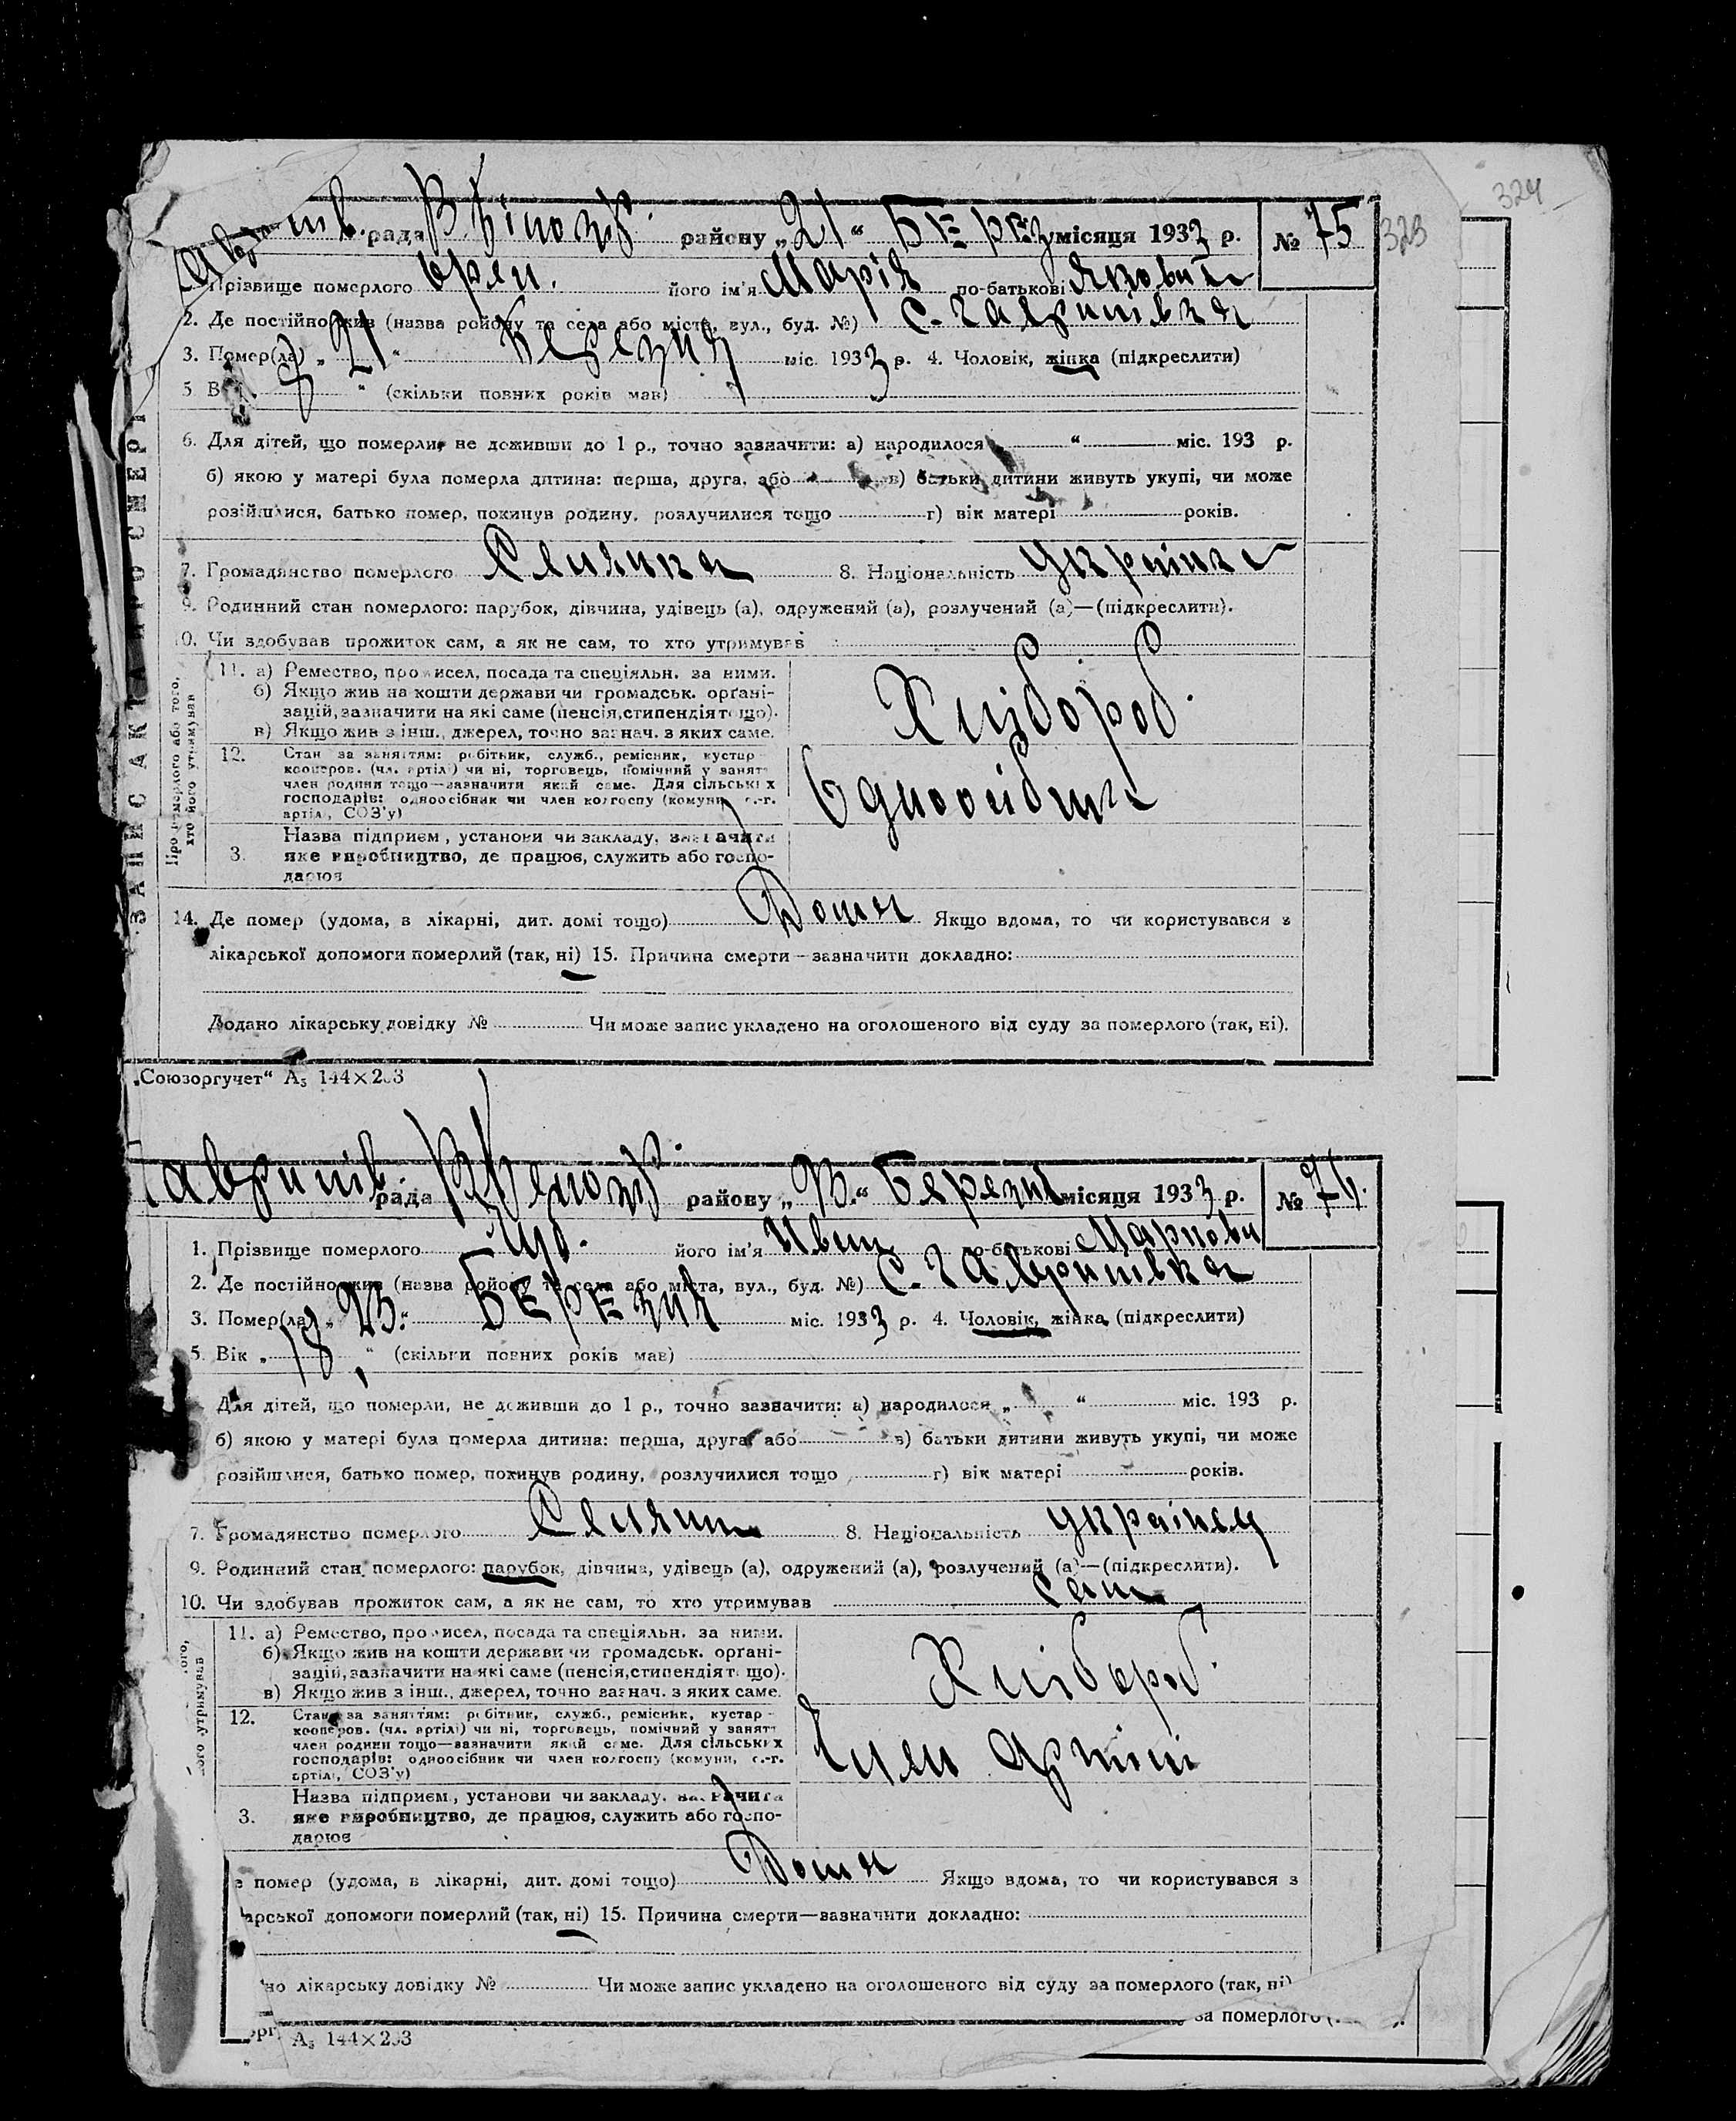 324
рада району „21“ БЕРЕз місяця 1933 р. № 75 323
Прізвище померлого його ім'я Марія по-батькові
2. Де постійно жив (назва району та села або міста, вул., буд. №) с. Гавришівка
3. Помер(ла) „21“ Березня міс. 1933 р. 4. Чоловік, жінка (підкреслити)
5 В “ (скільки повних років мав)
6. Для дітей, що померли, не доживши до 1 р., точно зазначити: а) народилося “ міс. 193 р.
б) якою у матері була померла дитина: перша, друга, або в) батьки дитини живуть укупі, чи може
розійшлися, батько помер, покинув родину, розлучилися тощо г) вік матері років.
7. Громадянство померлого Селянка 8. Національність Українка
9. Родинний стан померлого: парубок, дівчина, удівець (а), одружений (а), розлучений (а)—(підкреслити).
10. Чи здобував прожиток сам, а як не сам, то хто утримував
11. а) Ремество, промисел, посада та спеціяльн. за ними.
б) Якщо жив на кошти держави чи громадськ. орґані-
зацій, зазначити на які саме (пенсія, стипендія тощо).
в) Якщо жив з інш., джерел, точно зазнач. з яких саме.
Хлібороб
12. Стан за заняттям: робітник, служб., ремісник, кустар
кооперов. (чл. артілі) чи ні, торговець, помічний у занят
член родини тощо—зазначити який саме. Для сільських
господарів: одноосібник чи член колгоспу (комуни, с.-г.
артілі, СОЗ'у)
Одноосібник
3. Назва підприєм., установи чи закладу, зазначити
яке виробництво, де працює, служить або госпо-
дарює
14. Де помер (удома, в лікарні, дит. домі тощо) Дома Якщо вдома, то чи користувався з
лікарської допомоги померлий (так, ні) 15. Причина смерти—зазначити докладно:
Додано лікарську довідку № Чи може запис укладено на оголошеного від суду за померлого (так, ні).
ЗАПИС АКТА ПРО СМЕРТ
Про померлого або того,
хто його утримував
„Союзоргучет“ А₅ 144×203
Гавришів. рада району „23.“ Березня місяця 1933 р. № 74.
1. Прізвище померлого його ім'я Иван по-батькові Маркови
2. Де постійно жив (назва району та села або міста, вул., буд. №) С. Гавришівка
3. Помер(ла) „23.“ БЕРЕзня міс. 1933 р. 4. Чоловік, жінка (підкреслити)
5. Вік „18“ (скільки повних років мав)
Для дітей, що померли, не доживши до 1 р., точно зазначити: а) народилося „ “ міс. 193 р.
б) якою у матері була померла дитина: перша, друга або в) батьки дитини живуть укупі, чи може
розійшлися, батько помер, покинув родину, розлучилися тощо г) вік матері років.
7. Громадянство померлого Селянин 8. Національність українец
9. Родинний стан померлого: парубок, дівчина, удівець (а), одружений (а), розлучений (а)—(підкреслити).
10. Чи здобував прожиток сам, а як не сам, то хто утримував Сам
11. а) Ремество, промисел, посада та спеціяльн. за ними.
б) Якщо жив на кошти держави чи громадськ. орґані-
зацій, зазначити на які саме (пенсія, стипендія тощо).
в) Якщо жив з інш., джерел, точно зазнач. з яких саме.
Хлібороб.
12. Стан за заняттям: робітник, служб., ремісник, кустар-
кооперов. (чл. артілі) чи ні, торговець, помічний у занят
член родини тощо—зазначити який саме. Для сільських
господарів: одноосібник чи член колгоспу (комуни, с.-г.
артілі, СОЗ'у)
Член Артілі
3. Назва підприєм., установи чи закладу, зазначити
яке виробництво, де працює, служить або госпо-
дарює
е помер (удома, в лікарні, дит. домі тощо) Дома Якщо вдома, то чи користувався з
арської допомоги померлий (так, ні) 15. Причина смерти—зазначити докладно:
но лікарську довідку № Чи може запис укладено на оголошеного від суду за померлого (так, ні)
за померлого
орг А₅ 144×203